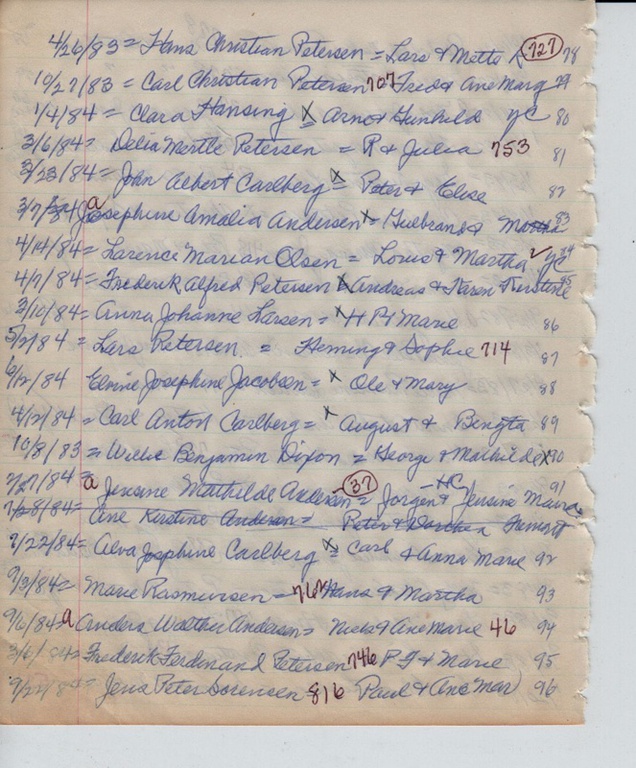 4/26/83 = Hans Christian Petersen = Lars & Mette K 727 78
10/27/83 = Carl Christian Petersen 707 Fred & Ane Marg 79
1/4/84 = Clara Hansing X = Arno & Gunhild yC 80
3/6/84 = Delia Mertle Petersen = R & Julia 753 81
3/23/84 = John Albert Carlberg X = Peter & Elise 82
3/7/84 a Josephine Amalia Andersen X = & Martha 83
4/14/84 = Larence Marian Olsen = Louis & Martha ✓ yC 84
4/7/84 = Frederik Alfred Petersen X Andreas & Karen Kerstine 85
3/10/84 = Anna Johanne Larsen = X H P & Marie 86
5/2/84 = Lars Petersen = Heming & Sophie 714 87
6/2/84 Elvine Josephine Jacobsen = X Ole & Mary 88
4/2/84 = Carl Anton Carlberg = X August & Bengta 89
10/8/83 = Willie Benjamin Dixon = George & Mathilde X 90
7/27/84 = a Jensine Mathilde Andersen 37 = Jorgen & Jensine Maria -HC 91
7/28/84 = Ane Kerstine Andersen = Peter & Dorthea Fremont
7/22/84 = Alva Josphine Carlberg X = Carl & Anna Marie 92
9/3/84 = Marie Rasmussen = 762 Hans & Martha 93
9/6/84 = a Anders Walther Andersen = Niels & Ane Marie 46 94
3/6/84 = Frederik Ferdinand Petersen 746 P F & Marie 95
9/22/84 = Jens Peter Sorensen 816 Paul & Ane Mar 96